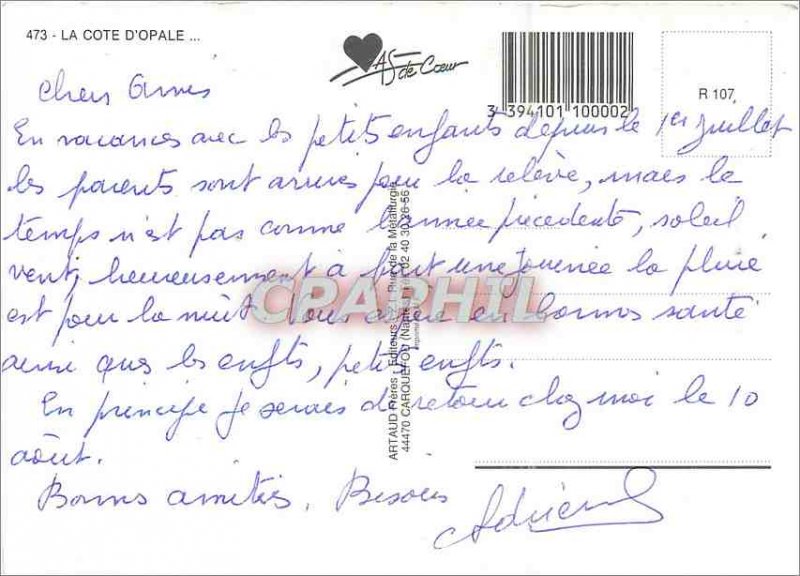 473 - LA COTE D'OPALE ...
AS de Cœur
3 394101 100002
R 107
Chers Amis
En vacances avec les petits enfants depuis le 1er juillet
les parents sont arrivés pour la relève, mais le
temps n'est pas comme l'année précédente, soleil
vent, heureusement à part une journée la pluie
est pour la nuit. Vous en bonne santé
ainsi que les enfts, petits enfts.
En principe je serais de retour chez moi le 10
août.
Bonnes amitiés, Bisous
ARTAUD Frères - Editeurs - Rue de la Métallurgie
44470 CARQUEFOU (Nantes) 02 40 30 28 56
CPAPHIL